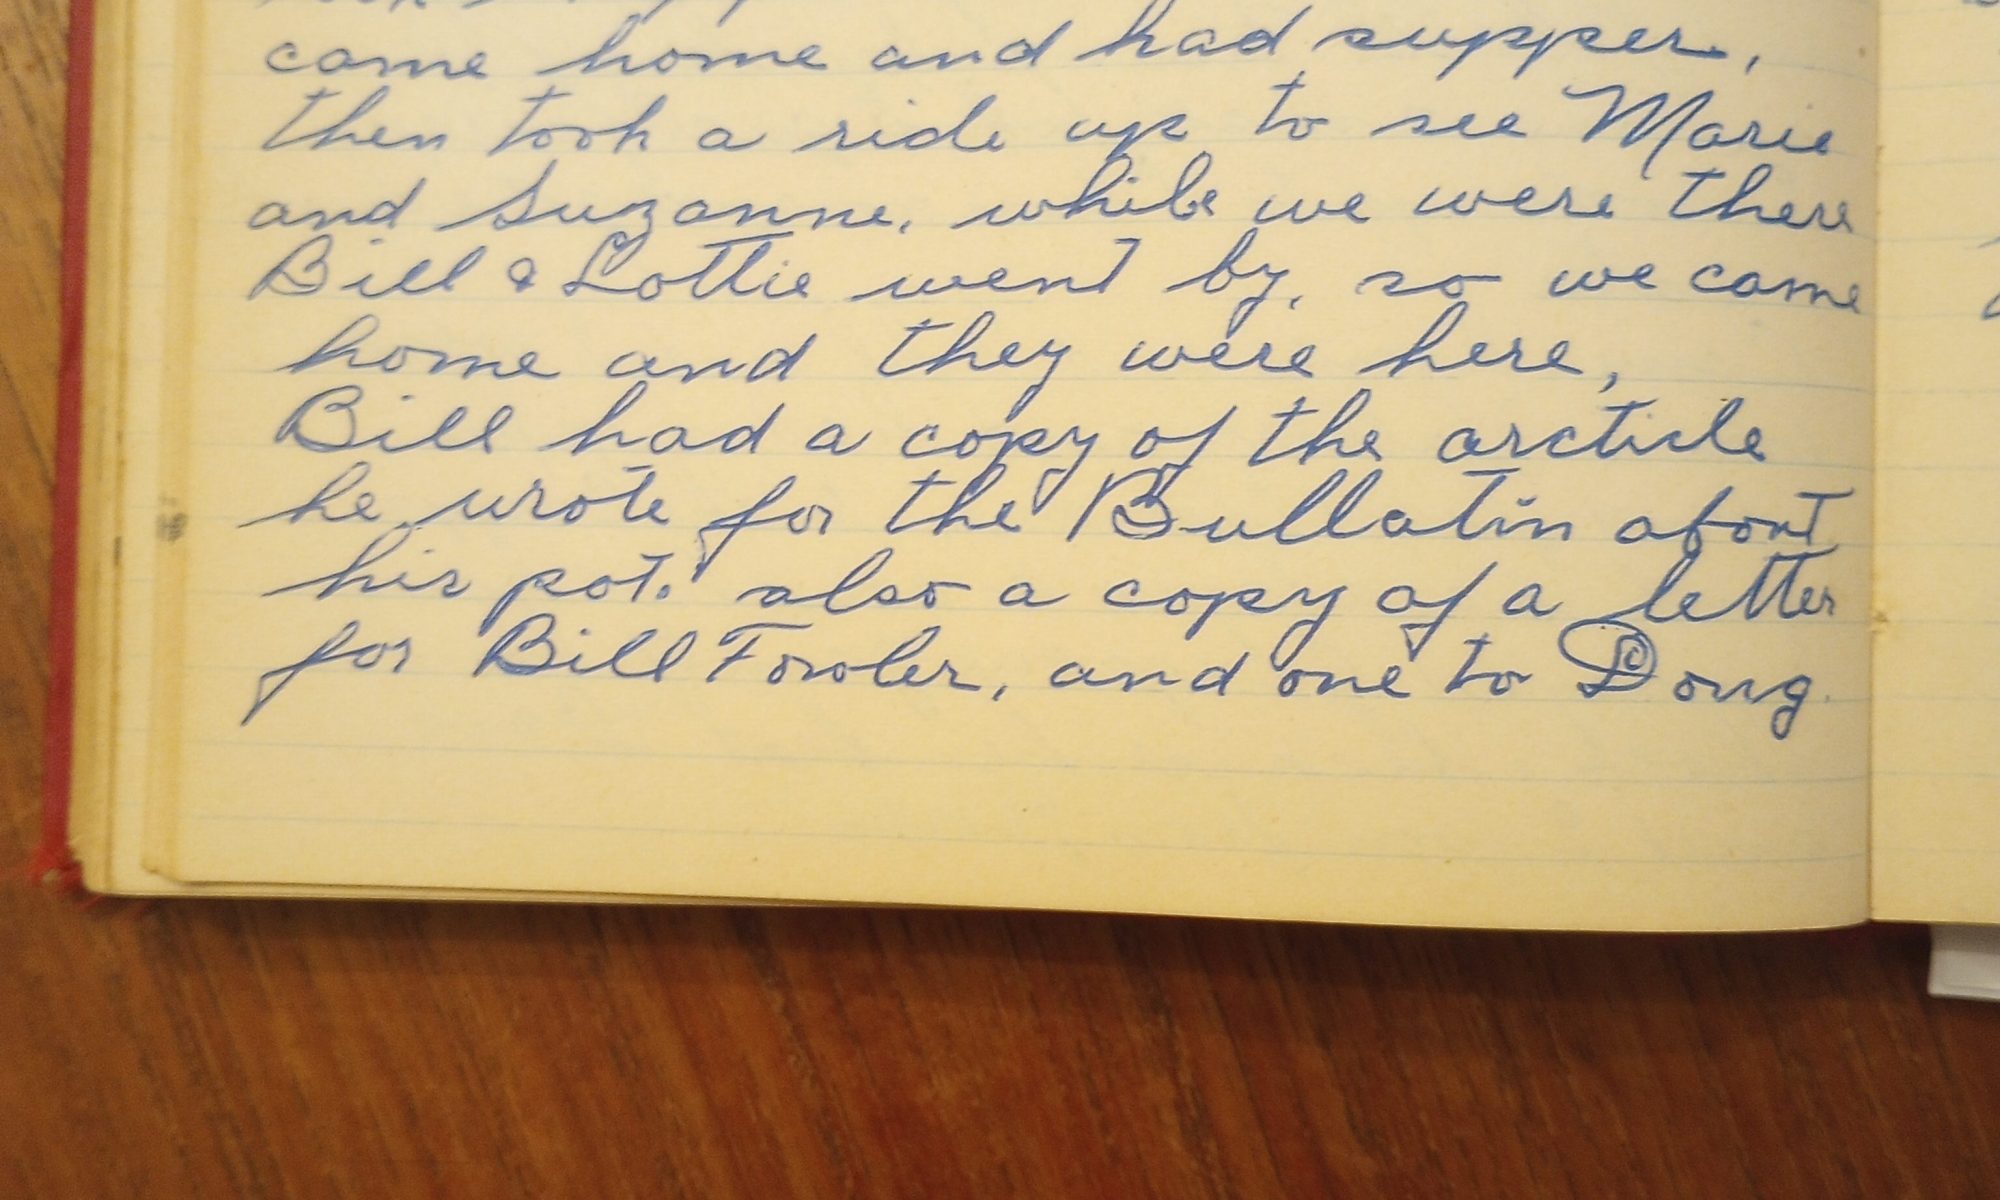 came home and had supper,
then took a ride up to see Marie
and Suzanne, while we were there
Bill & Lottie went by, so we came
home and they were here,
Bill had a copy of the arcticle
he wrote for the Bullatin about
his pot. also a copy of a letter
for Bill Fowler, and one to Doug.